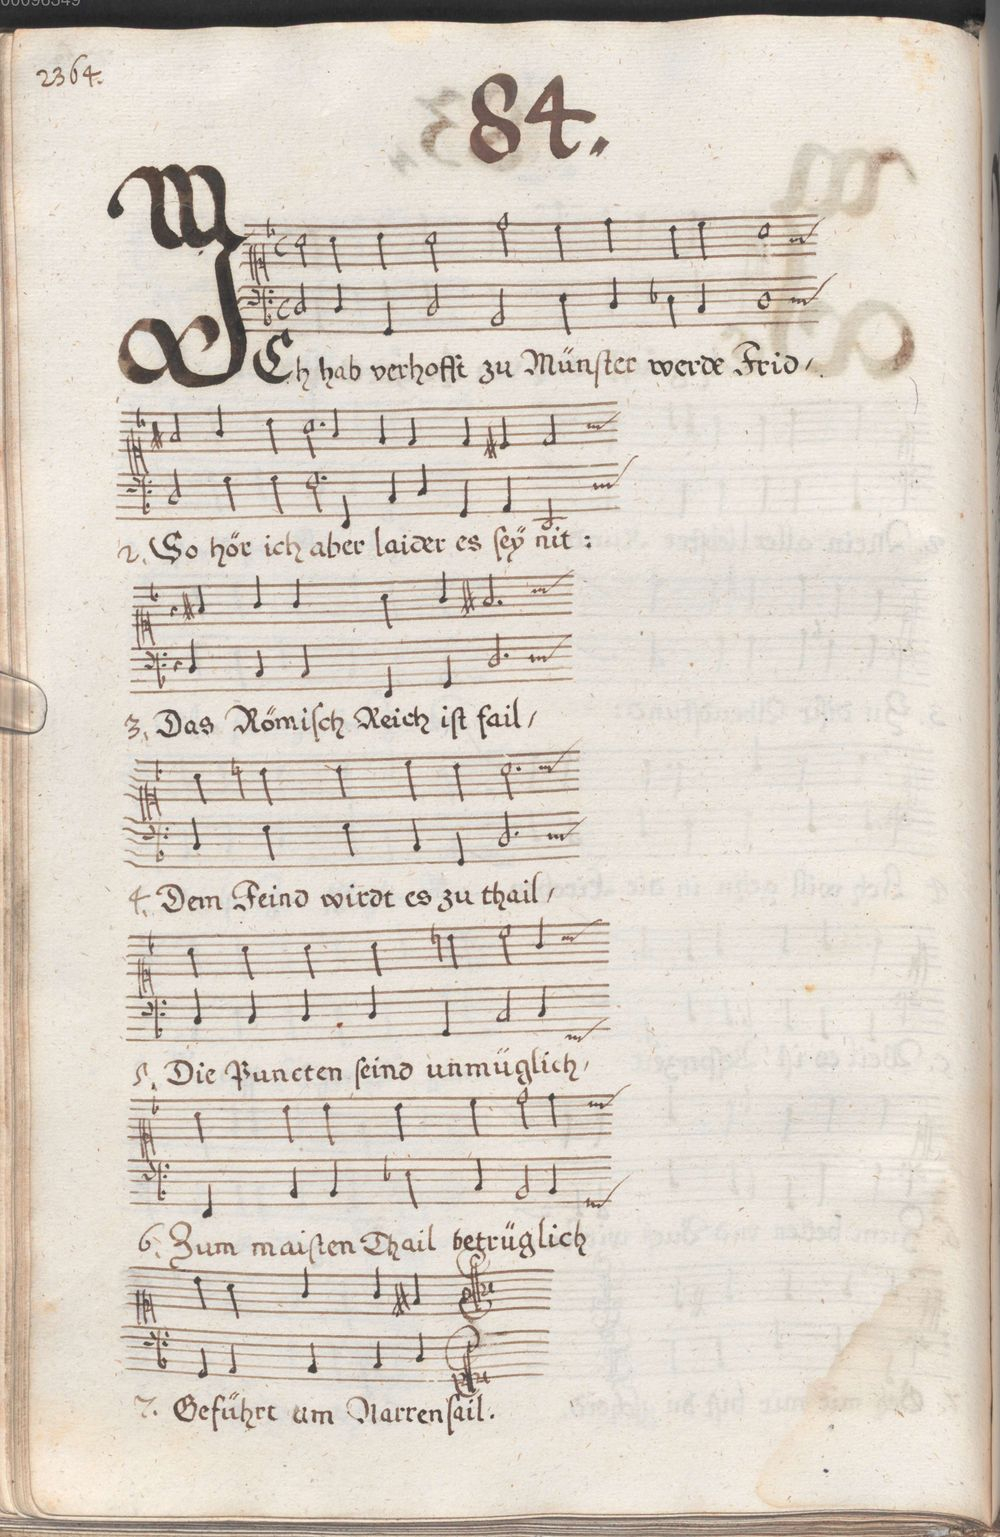 2364.
84.
ICh hab verhofft zu Münster werde Frid,
2. So hör ich aber laider es seÿ nit:
3. Das Römisch Reich ist fail,
4. Dem Feind wirdt es zu thail,
5. Die Puncten seind unmüglich,
6. Zum maisten Thail betrüglich
7. Geführt am Narrensail.